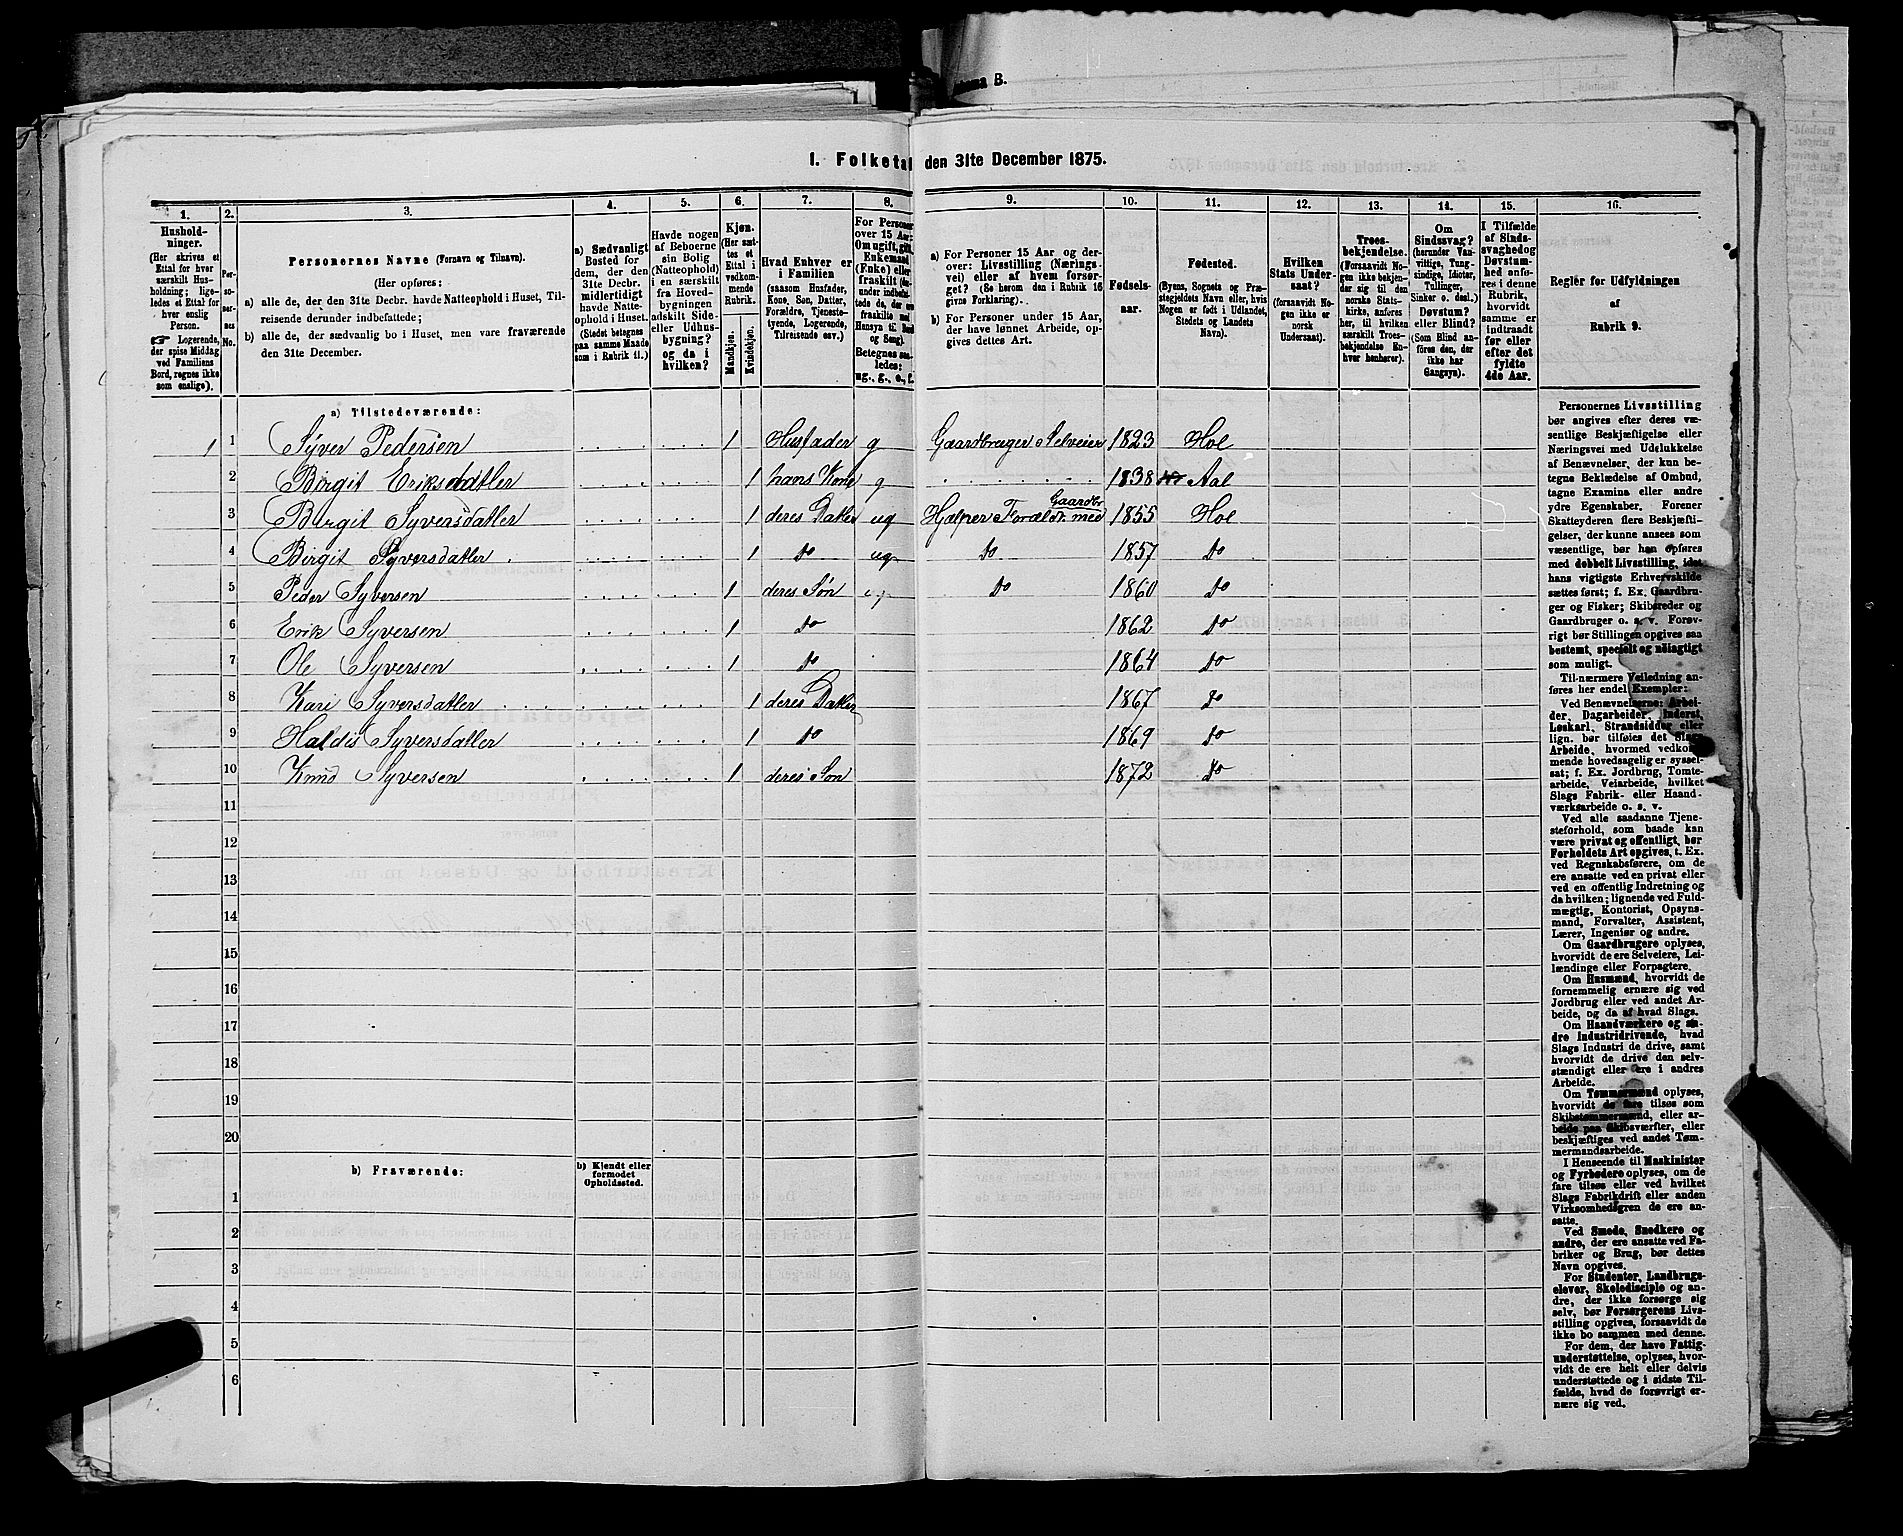 tema B.
I. Folketal den 31te December 1875.
1. 2. 3. 4. 5. 6. 7. 8. 9. 10. 11. 12. 13. 14. 15. 16.
Husholdninger.
(Her skrives et Ettal for hver særskilt Husholdning; ligeledes et Ettal for hver enslig Person.
☞ Logerende, der spise Middag ved Familiens Bord, regnes ikke som enslige).
Personernes No.
Personernes Navne (Fornavn og Tilnavn).
(Her opføres:
a) alle de, der den 31te Decbr. havde Natteophold i Huset, Tilreisende derunder indbefattede;
b) alle de, der sædvanlig bo i Huset, men vare fraværende den 31te December.
a) Sædvanligt Bosted for dem, der den 31te Decbr. midlertidigt havde Natteophold i Huset. (Stedet betegnes paa samme Maade som i Rubrik 11.)
Havde nogen af Beboerne sin Bolig (Natteophold) i en særskilt fra Hovedbygningen adskilt Side- eller Udhusbygning? og da i hvilken?
Kjøn.
(Her sættes et Ettal i vedkommende Rubrik.
Mandkjøn.
Kvindekjøn.
Hvad Enhver er i Familien
(saasom Husfader, Kone, Søn, Datter, Forældre, Tjenestetyende, Logerende, Tilreisende osv.)
For Personer over 15 Aar: Om ugift, gift, Enkemand (Enke) eller fraskilt
Betegnes saaledes: ug., g., e., f.
a) For Personer 15 Aar og derover: Livsstilling (Næringsvei) eller af hvem forsørget? (Se herom den i Rubrik 16 givne Forklaring).
b) For Personer under 15 Aar, der have lønnet Arbeide, opgives dettes Art.
Fødselsaar.
Fødested.
(Byens, Sognets og Præstegjeldets Navn eller, hvis Nogen er født i Udlandet, Stedets og Landets Navn).
Hvilken Stats Undersaat?
(forsaavidt Nogen ikke er norsk Undersaat).
Troesbekjendelse.
(Forsaavidt Nogen ikke bekjender sig til den norske Statskirke, anføres her, til hvilken særskilt Troesbekjendelse Enhver henhører).
Om Sindssvag? (herunder Vanvittige, Tungsindige, Idioter, Tullinger, Sinker o. desl.)
Døvstum? eller Blind? (Som Blind anføres den, der ikke har Gangsyn).
I Tilfælde af Sindssvaghed og Døvstumhed anføres i denne Rubrik, hvorvidt samme er indtraadt før eller efter det fyldte 4de Aar.
Regler for Udfyldningen af Rubrik 9.
a) Tilstedeværende:
1 1 Syver Pedersen 1 Husfader g Gaardbruger Selveier 1823 Hol
2 Birgit Eriksdatter 1 hans Kone g 1838 Aal
3 Birgit Syversdatter 1 deres Datter ug Hjælper Foreldr. med Gaardbr 1855 Hol
4 Birgit Syversdatter 1 Do ug Do 1857 Do
5 Peder Syversen 1 deres Søn ug Do 1860 Do
6 Erik Syversen 1 Do 1862 Do
7 Ole Syversen 1 Do 1864 Do
8 Kari Syversdatter 1 deres Datter 1867 Do
9 Haldis Syversdatter 1 Do 1869 Do
10 Knud Syversen 1 deres Søn 1872 Do
11
12
13
14
15
16
17
18
19
20
b) Fraværende:
b) Kjendt eller formodet Opholdssted.
1
2
3
4
5
6
Personernes Livsstilling
bør angives efter deres væsentlige Beskjæftigelse eller
Næringsvei med Udelukkelse
af Benævnelser, der kun betegne Beklædelse af Ombud,
tagne Examina eller andre
ydre Egenskaber. Forener
Skatteyderen flere Beskjæftigelser, der kunne ansees som
væsentlige, bør han opføres
med dobbelt Livsstilling, idet
hans vigtigste Erhvervskilde
sættes først; f. Ex. Gaardbruger og Fisker; Skibsreder og
Gaardbruger o. s. v. Forøvrigt bør Stillingen opgives saa
bestemt, specielt og nøiagtigt
som muligt.
Til nærmere Veiledning anføres her endel Exempler:
Ved Benævnelserne: Arbeider, Dagarbeider, Inderst,
Løskarl, Strandsidder eller
lign. bør tilføies det Slags
Arbeide, hvormed vedkommende hovedsagelig er sysselsat; f. Ex. Jordbrug, Tomtearbeide, Veiarbeide, hvilket
Slags Fabrik- eller Haandværksarbeide o. s. v.
Ved alle saadanne Tjenesteforhold, som baade kan
være privat og offentligt, bør
Forholdets Art opgives, t. Ex.
ved Regnskabsførere, om de
ere ansatte ved en privat eller
ved en offentlig Indretning og
da hvilken; lignende ved Fuldmægtig, Kontorist, Opsynsmand, Forvalter, Assistent,
Lærer, Ingeniør og andre.
Om Gaardbrugere oplyses,
hvorvidt de ere Selveiere, Leilændinge eller Forpagtere.
Om Husmænd, hvorvidt de
fornemmelig ernære sig ved
Jordbrug eller ved andet Arbeide, og da af hvad Slags.
Om Haandværkere og andre Industridrivende, hvad
Slags Industri de drive, samt
hvorvidt de drive den selvstændigt eller ere i andres
Arbeide.
Om Tømmermænd oplyses,
hvorvidt de fare tilsøs som
Skibstømmermænd, eller arbeide paa Skibsværfter, eller
beskjæftiges ved andet Tømmermandsarbeide.
I Henseende til Maskinister
og Fyrbødere oplyses, om de
fare tilsøs eller ved hvilket
Slags Fabrikdrift eller anden
Virksomhedsgren de ere ansatte.
Ved Smede, Snedkere og
andre, der ere ansatte ved Fabriker og Brug, bør dettes
Navn opgives.
For Studenter, Landbrugselever, Skoledisciple og andre, der ikke forsørge sig
selv, bør Forsørgerens Livsstilling opgives, forsaavidt de
ikke bo sammen med denne.
For dem, der have Fattigunderstøttelse, oplyses, hvorvidt de ere helt eller delvis
understøttede og i sidste Tilfælde, hvad de forøvrigt ernære sig ved.